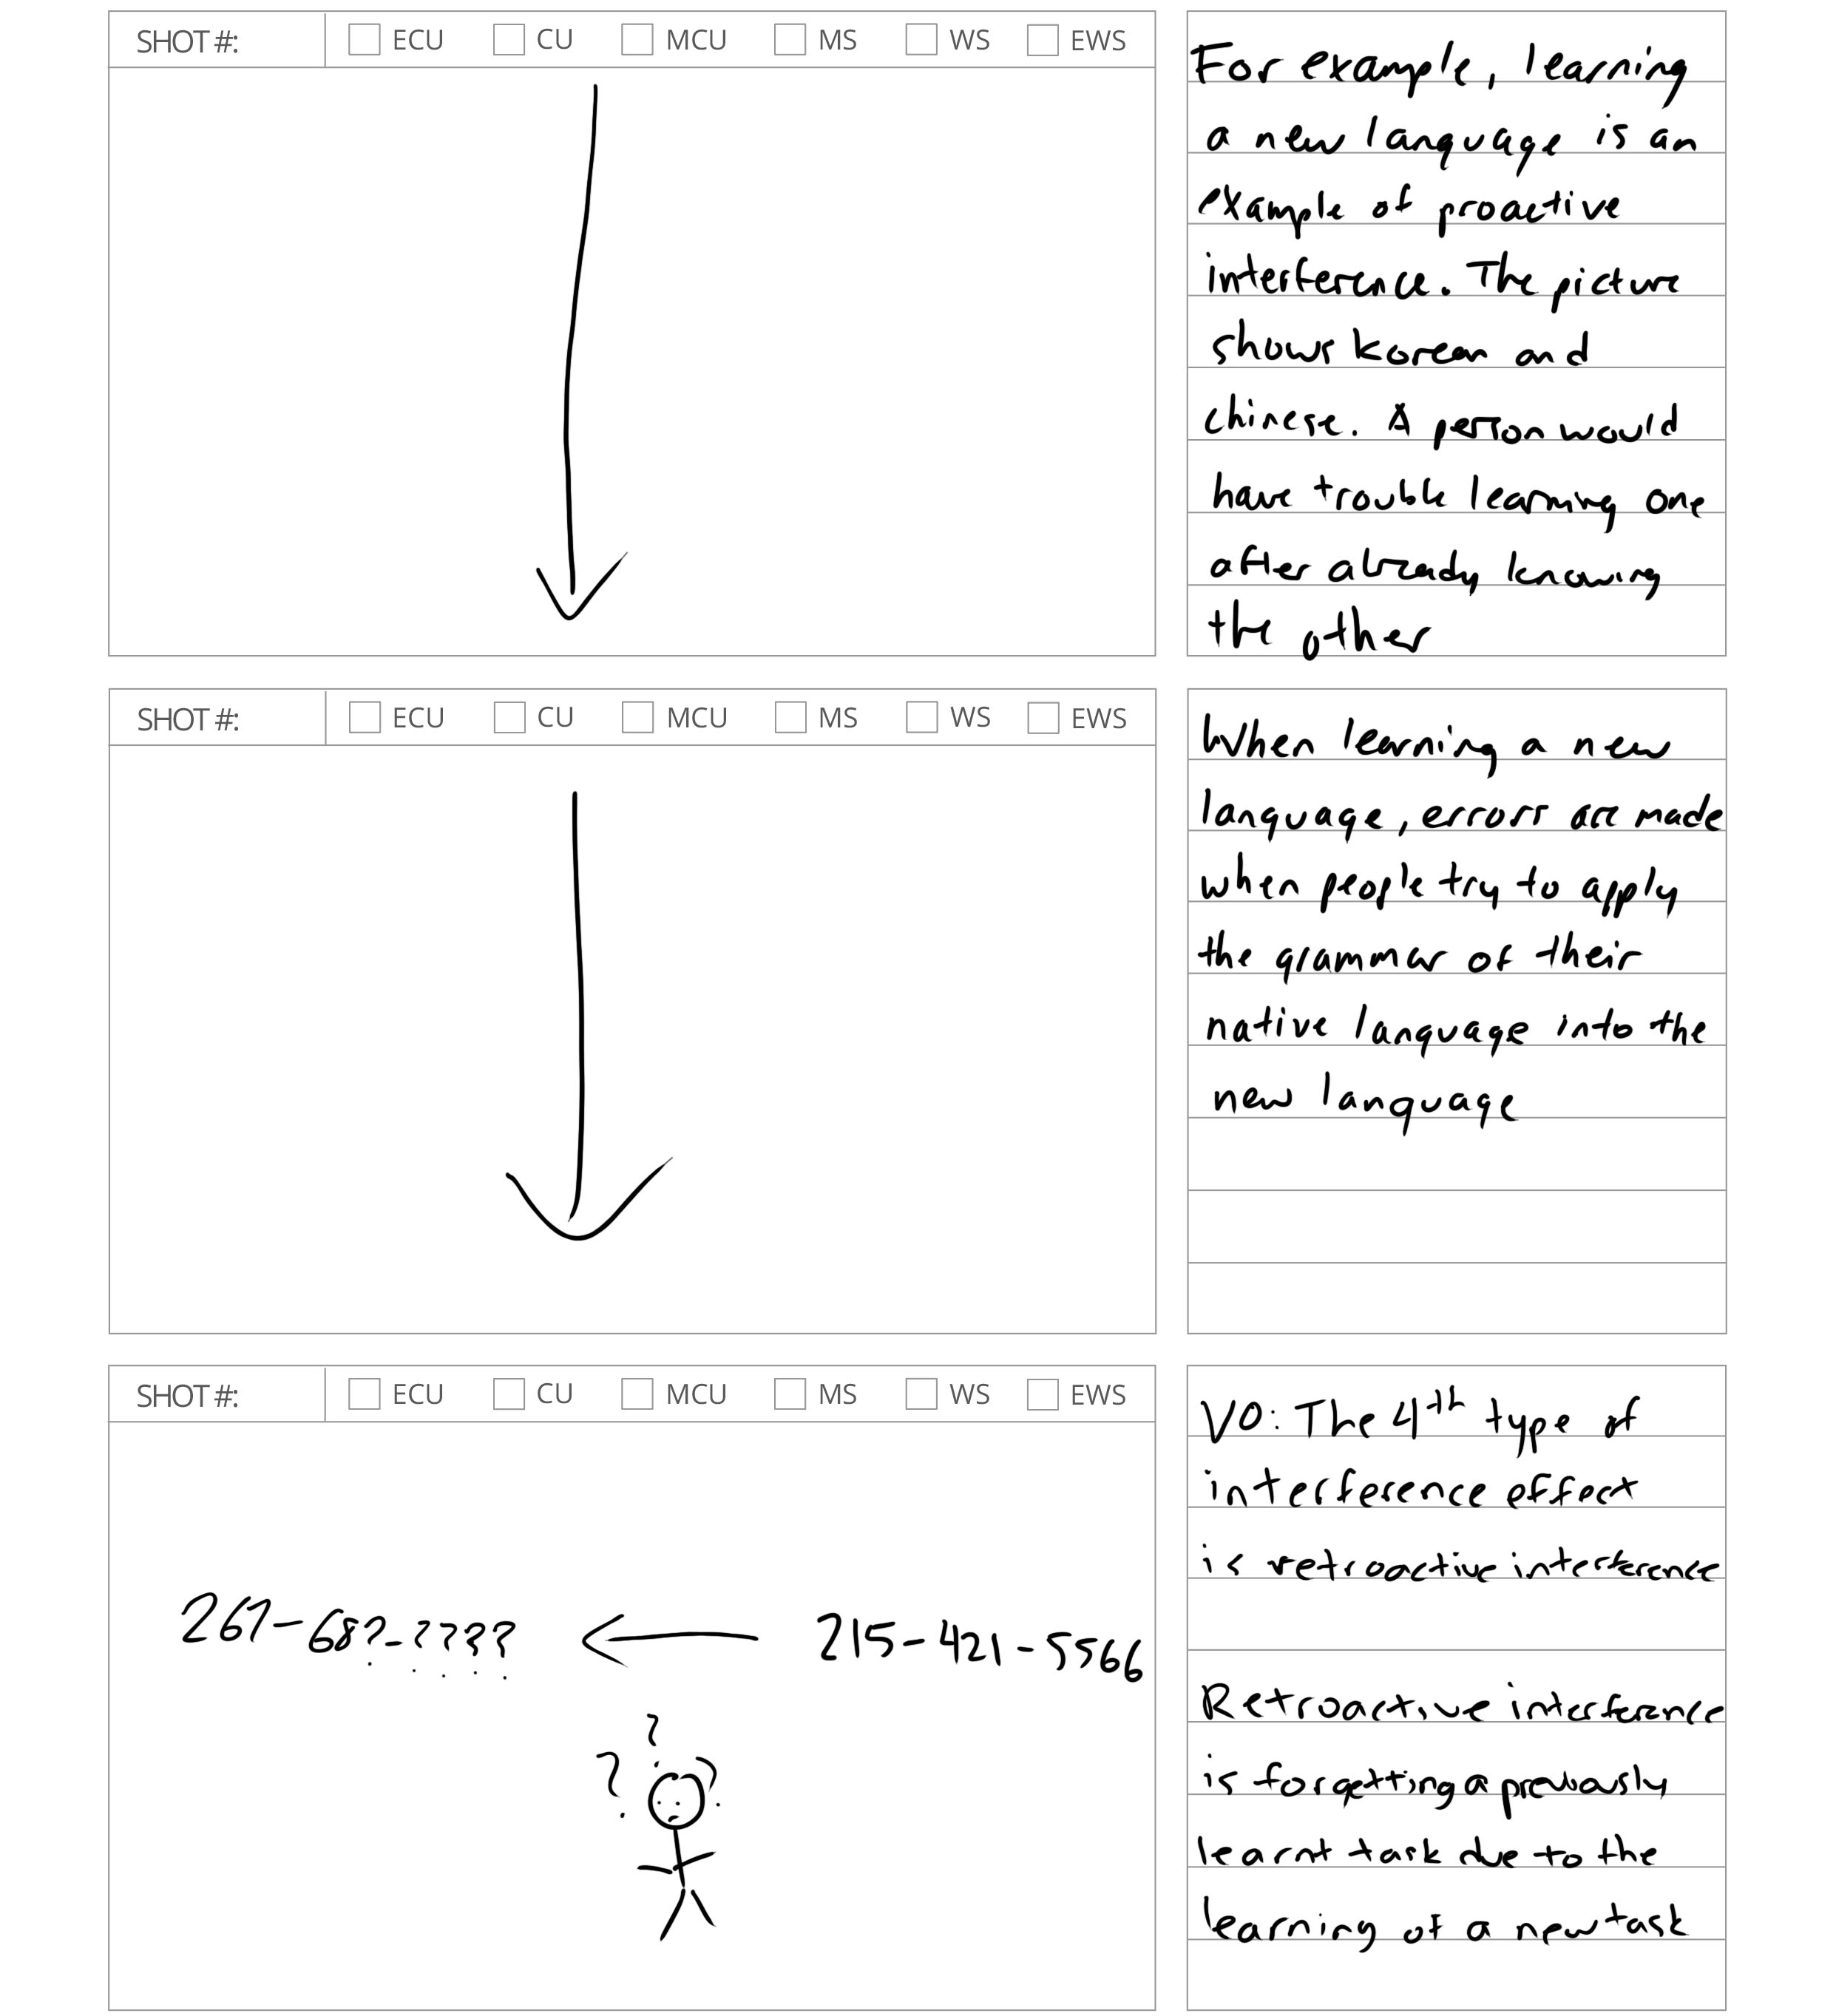 SHOT #: ECU CU MCU MS WS EWS
For example, learning
a new language is an
example of proactive
interference. The picture
shows korean and
chinese. A person would
have trouble learning one
after already knowing
the other
SHOT #: ECU CU MCU MS WS EWS
When learning a new
language, errors are made
when people try to apply
the grammar of their
native language into the
new language
SHOT #: ECU CU MCU MS WS EWS
267-68?-???? ← 215-421-5566
? ? ?
VO: The 4th type of
interference effect
is retroactive interference
Retroactive interference
is forgetting a previously
learnt task due to the
learning of a new task